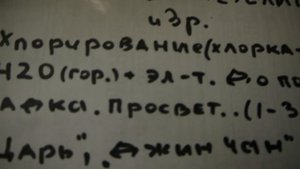 изр.
Хлорирование(хлорка-
H2O(гор.)+ эл-т. До по
лака. Просвет..(1-3
царь", Джин чан"